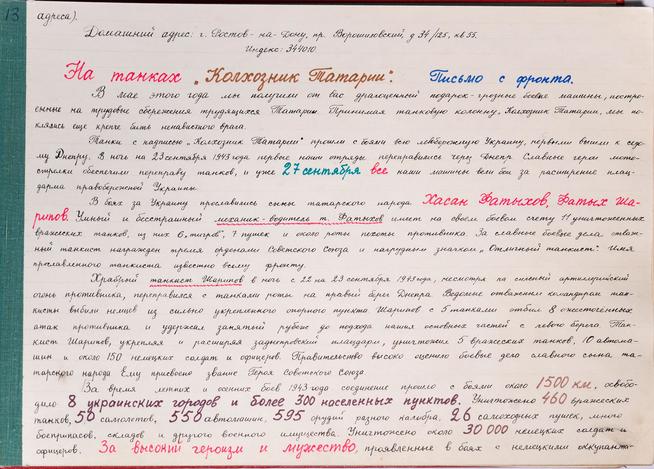 13
адреса).
Домашний адрес: г. Ростов-на-Дону, пр. Ворошиловский, д 34/125, кв 55.
Индекс: 344010
На танках „Колхозник Татарии". Письмо с фронта.
В мае этого года мы получили от вас драгоценный подарок - грозные боевые машины, построенные
на трудовые сбережения трудящихся Татарии. Принимая танковую колонну „Колхозник Татарии, мы по-
клялись еще крепче бить ненавистного врага.
Танки с надписью „Колхозник Татарии" прошли с боями всю левобережную Украину, первыми вышли к седо-
му Днепру. В ночь на 23 сентября 1943 года первые наши отряды переправились через Днепр Славные герои мото-
стрелки обеспечили переправу танков, и уже 27 сентября все наши машины вели бои за расширение плац-
дарма правобережной Украины.
В боях за Украину прославились сыны татарского народа Хасан Фатыхов, Фатых Ша-
рипов. Умный и бесстрашный механик-водитель т. Фатыхов имеет на своем боевом счету 11 уничтоженных
вражеских танков, из них 6„тигров", 7 пушек и около роты пехоты противника. За славные боевые дела отваж-
ный танкист награжден тремя орденами Советского Союза и нагрудным значком „Отличный танкист". Имя
прославленного танкиста известно всему фронту.
Храбрый танкист Шарипов в ночь с 22 на 23 сентября 1943 года, несмотря на сильный артиллерийский
огонь противника, переправился с танками роты на правый берег Днепра Ведомые отважным командиром тан-
кисты выбили немцев из сильно укрепленного опорного пункта Шарипов с 5 танками отбил 8 ожесточенных
атак противника и удержал занятый рубеж до подхода наших основных частей с левого берега Тан-
кист Шарипов, укрепляя и расширяя заднепровский плацдарм, уничтожил 5 вражеских танков, 10 автома-
шин и около 150 немецких солдат и офицеров. Правительство высоко оценило боевые дела славного сына та-
тарского народа Ему присвоено звание Героя Советского Союза.
За время летних и осенних боев 1943 года соединение прошло с боями около 1500 км, освобо-
дило 8 украинских городов и более 300 населенных пунктов. Уничтожено 460 вражеских
танков, 50 самолетов, 550 автомашин, 595 орудий разного калибра, 26 самоходных пушек, много
боеприпасов, складов и другого военного имущества. Уничтожено около 30 000 немецких солдат и
офицеров. За высокий героизм и мужество, проявленные в боях с немецкими оккупанта-